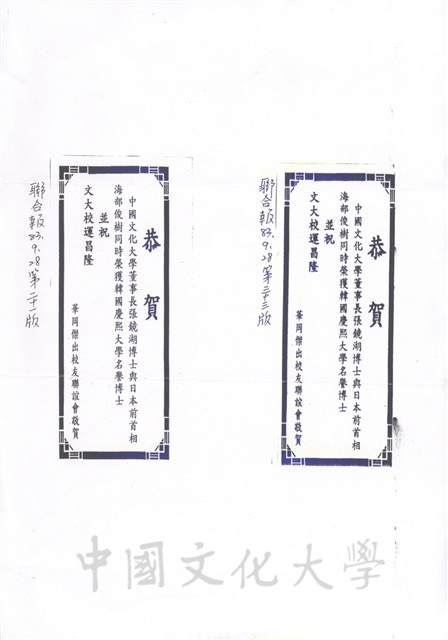 聯合報83.9.28第二十三版
恭賀
中國文化大學董事長張鏡湖博士與日本前首相
海部俊樹同時榮獲韓國慶熙大學名譽博士
並祝
文大校運昌隆
華岡傑出校友聯誼會敬賀
聯合報83.9.28第二十一版
恭賀
中國文化大學董事長張鏡湖博士與日本前首相
海部俊樹同時榮獲韓國慶熙大學名譽博士
並祝
文大校運昌隆
華岡傑出校友聯誼會敬賀
中國文化大學